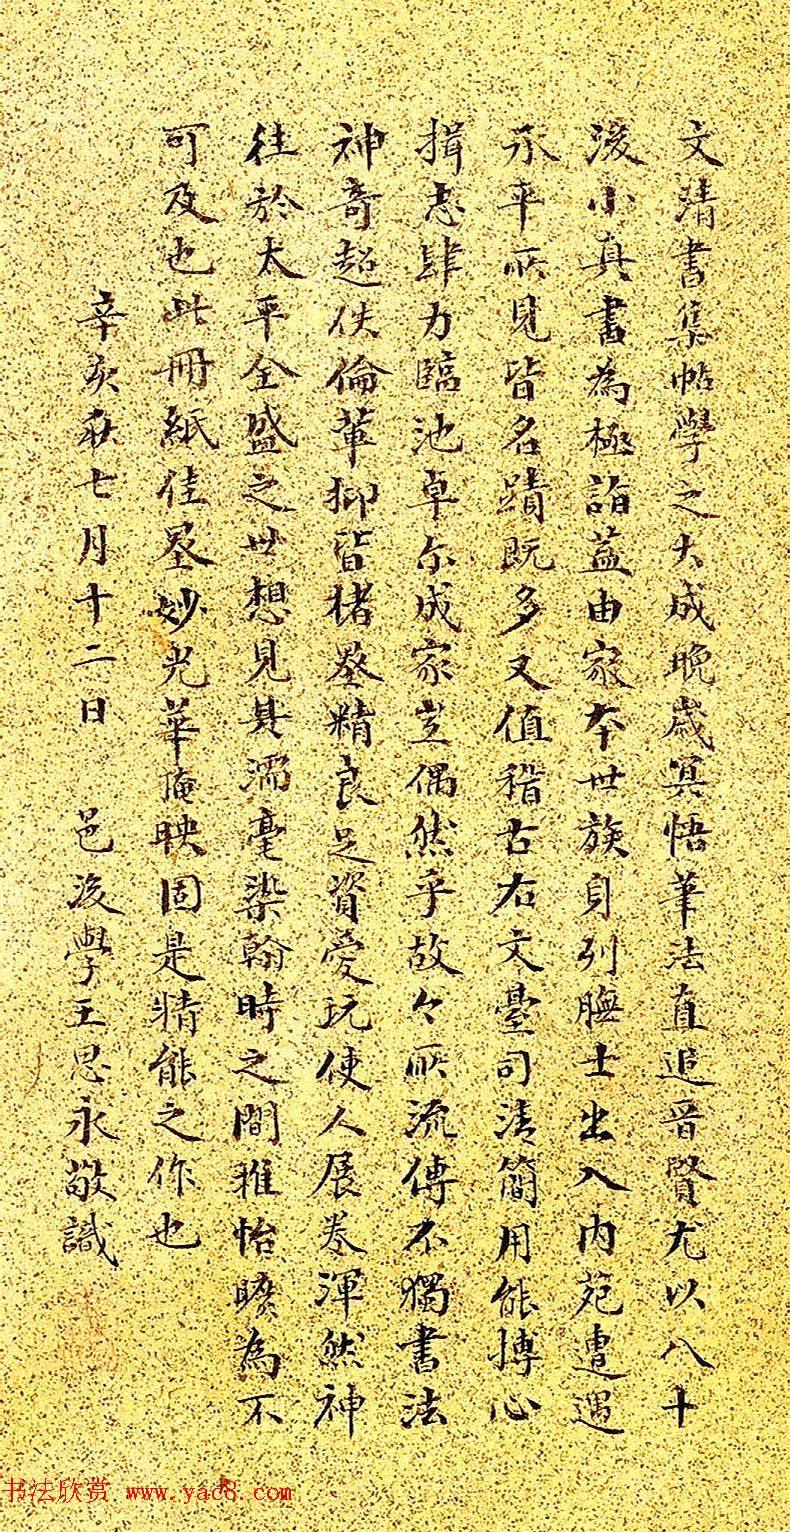 文清書集帖學之大成晚歲冥悟筆法直追晉賢尤以八十
後小真書為極詣蓋由家本世族身列膴士出入内苑遭遇
承平所見皆名蹟既多又值稽古右文臺司清簡用能摶心
揖志肆力臨池卓尔成家豈偶然乎故々所流傳不獨書法
神奇超佚倫輩抑皆楮墨精良足資愛玩使人展卷渾然神
往於太平全盛之世想見其濡毫染翰時之間雅怡曠為不
可及也此冊紙佳墨妙光華掩映固是精能之作也
辛亥秋七月十二日 邑後學王思永敬識
书法欣赏 www.yac8.com